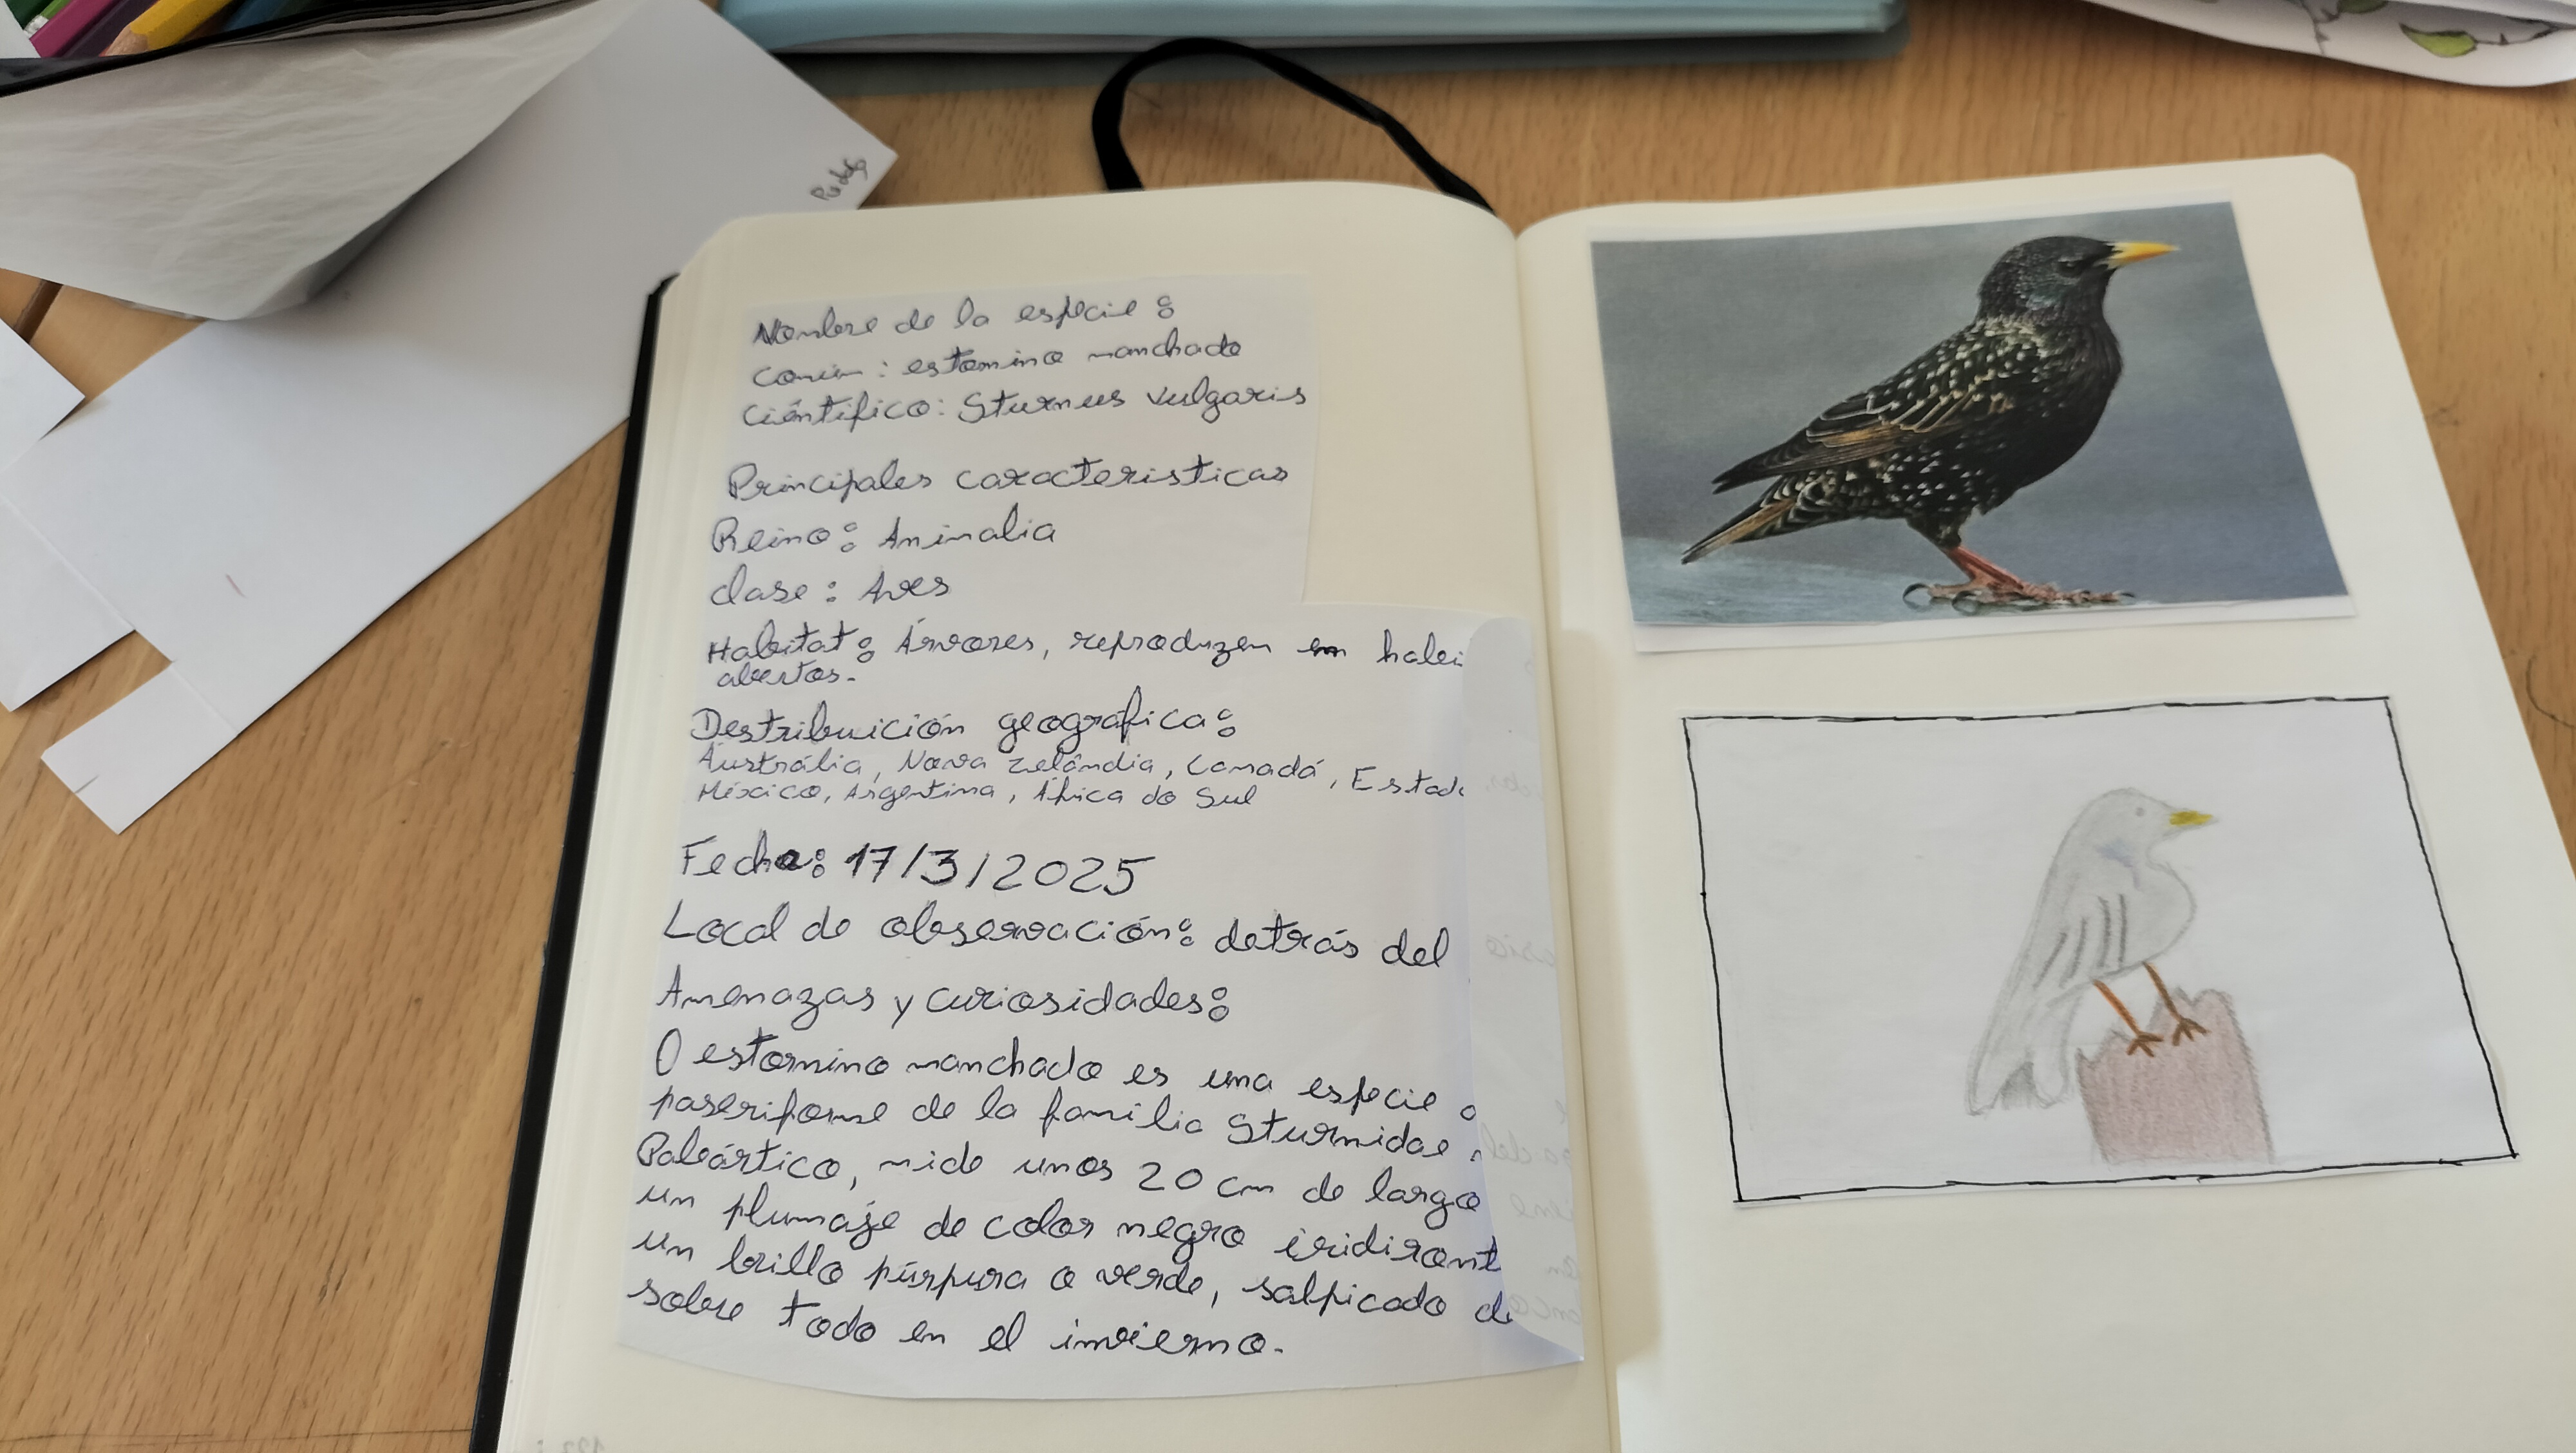 Pudels
Nombre de la especie:
Comum: estornino manchado
Ciéntifico: Sturnus vulgaris
Principales caracteristicas
Reino: Animalia
clase: Aves
Habitat: Árvores, reproduzen em habi
abertos.
Destribuición geográfica:
Áustrália, Nova Zelândia, Canadá, Estad
México, Argentina, África do Sul
Fecha: 17/3/2025
Local de observación: detrás del
Amenazas y curiosidades:
O estornino manchado es una especie d
paseriforme de la familia Sturnidae
Paleártico, mide unos 20 cm de largo
un plumaje de color negro iridisant
un brillo púrpura o verde, salpicado de
sobre todo en el invierno.